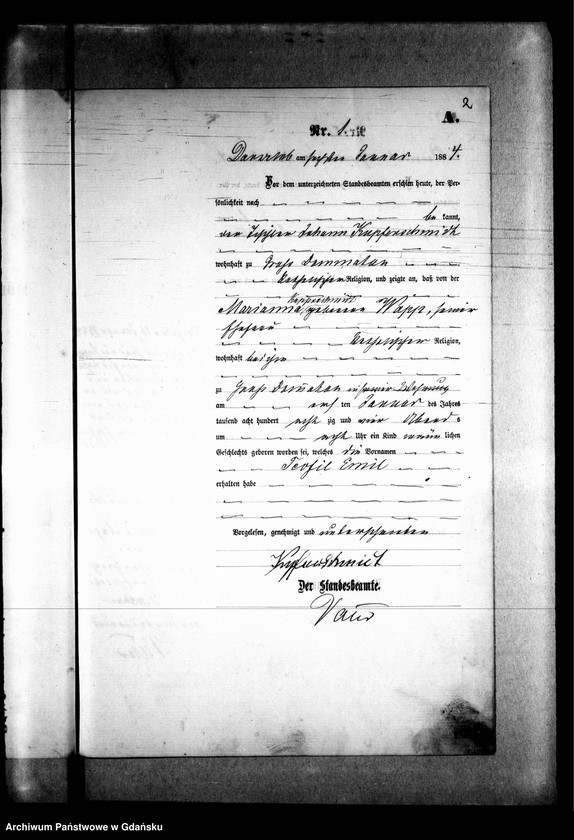 2
A.
Nr. 1.
am sechsten Januar 1884.
Vor dem unterzeichneten Standesbeamten erschien heute, der Per-
sönlichkeit nach
be kannt,
der Johann Kupferschmidt
wohnhaft zu Groß Dommatau
katholischer Religion, und zeigte an, daß von der
Kupferschmidt
Marianna geborene Wapp, seiner
Ehefrau
katholischer Religion,
wohnhaft bei ihm
zu Groß Dommatau in seiner Wohnung
am ten Januar des Jahres
tausend acht hundert acht zig und vier Abends
um acht Uhr ein Kind männ lichen
Geschlechts geboren worden sei, welches die Vornamen
Teofil Emil
erhalten habe
Vorgelesen, genehmigt und unterschrieben
Kupferschmidt
Der Standesbeamte.
Archiwum Państwowe w Gdańsku